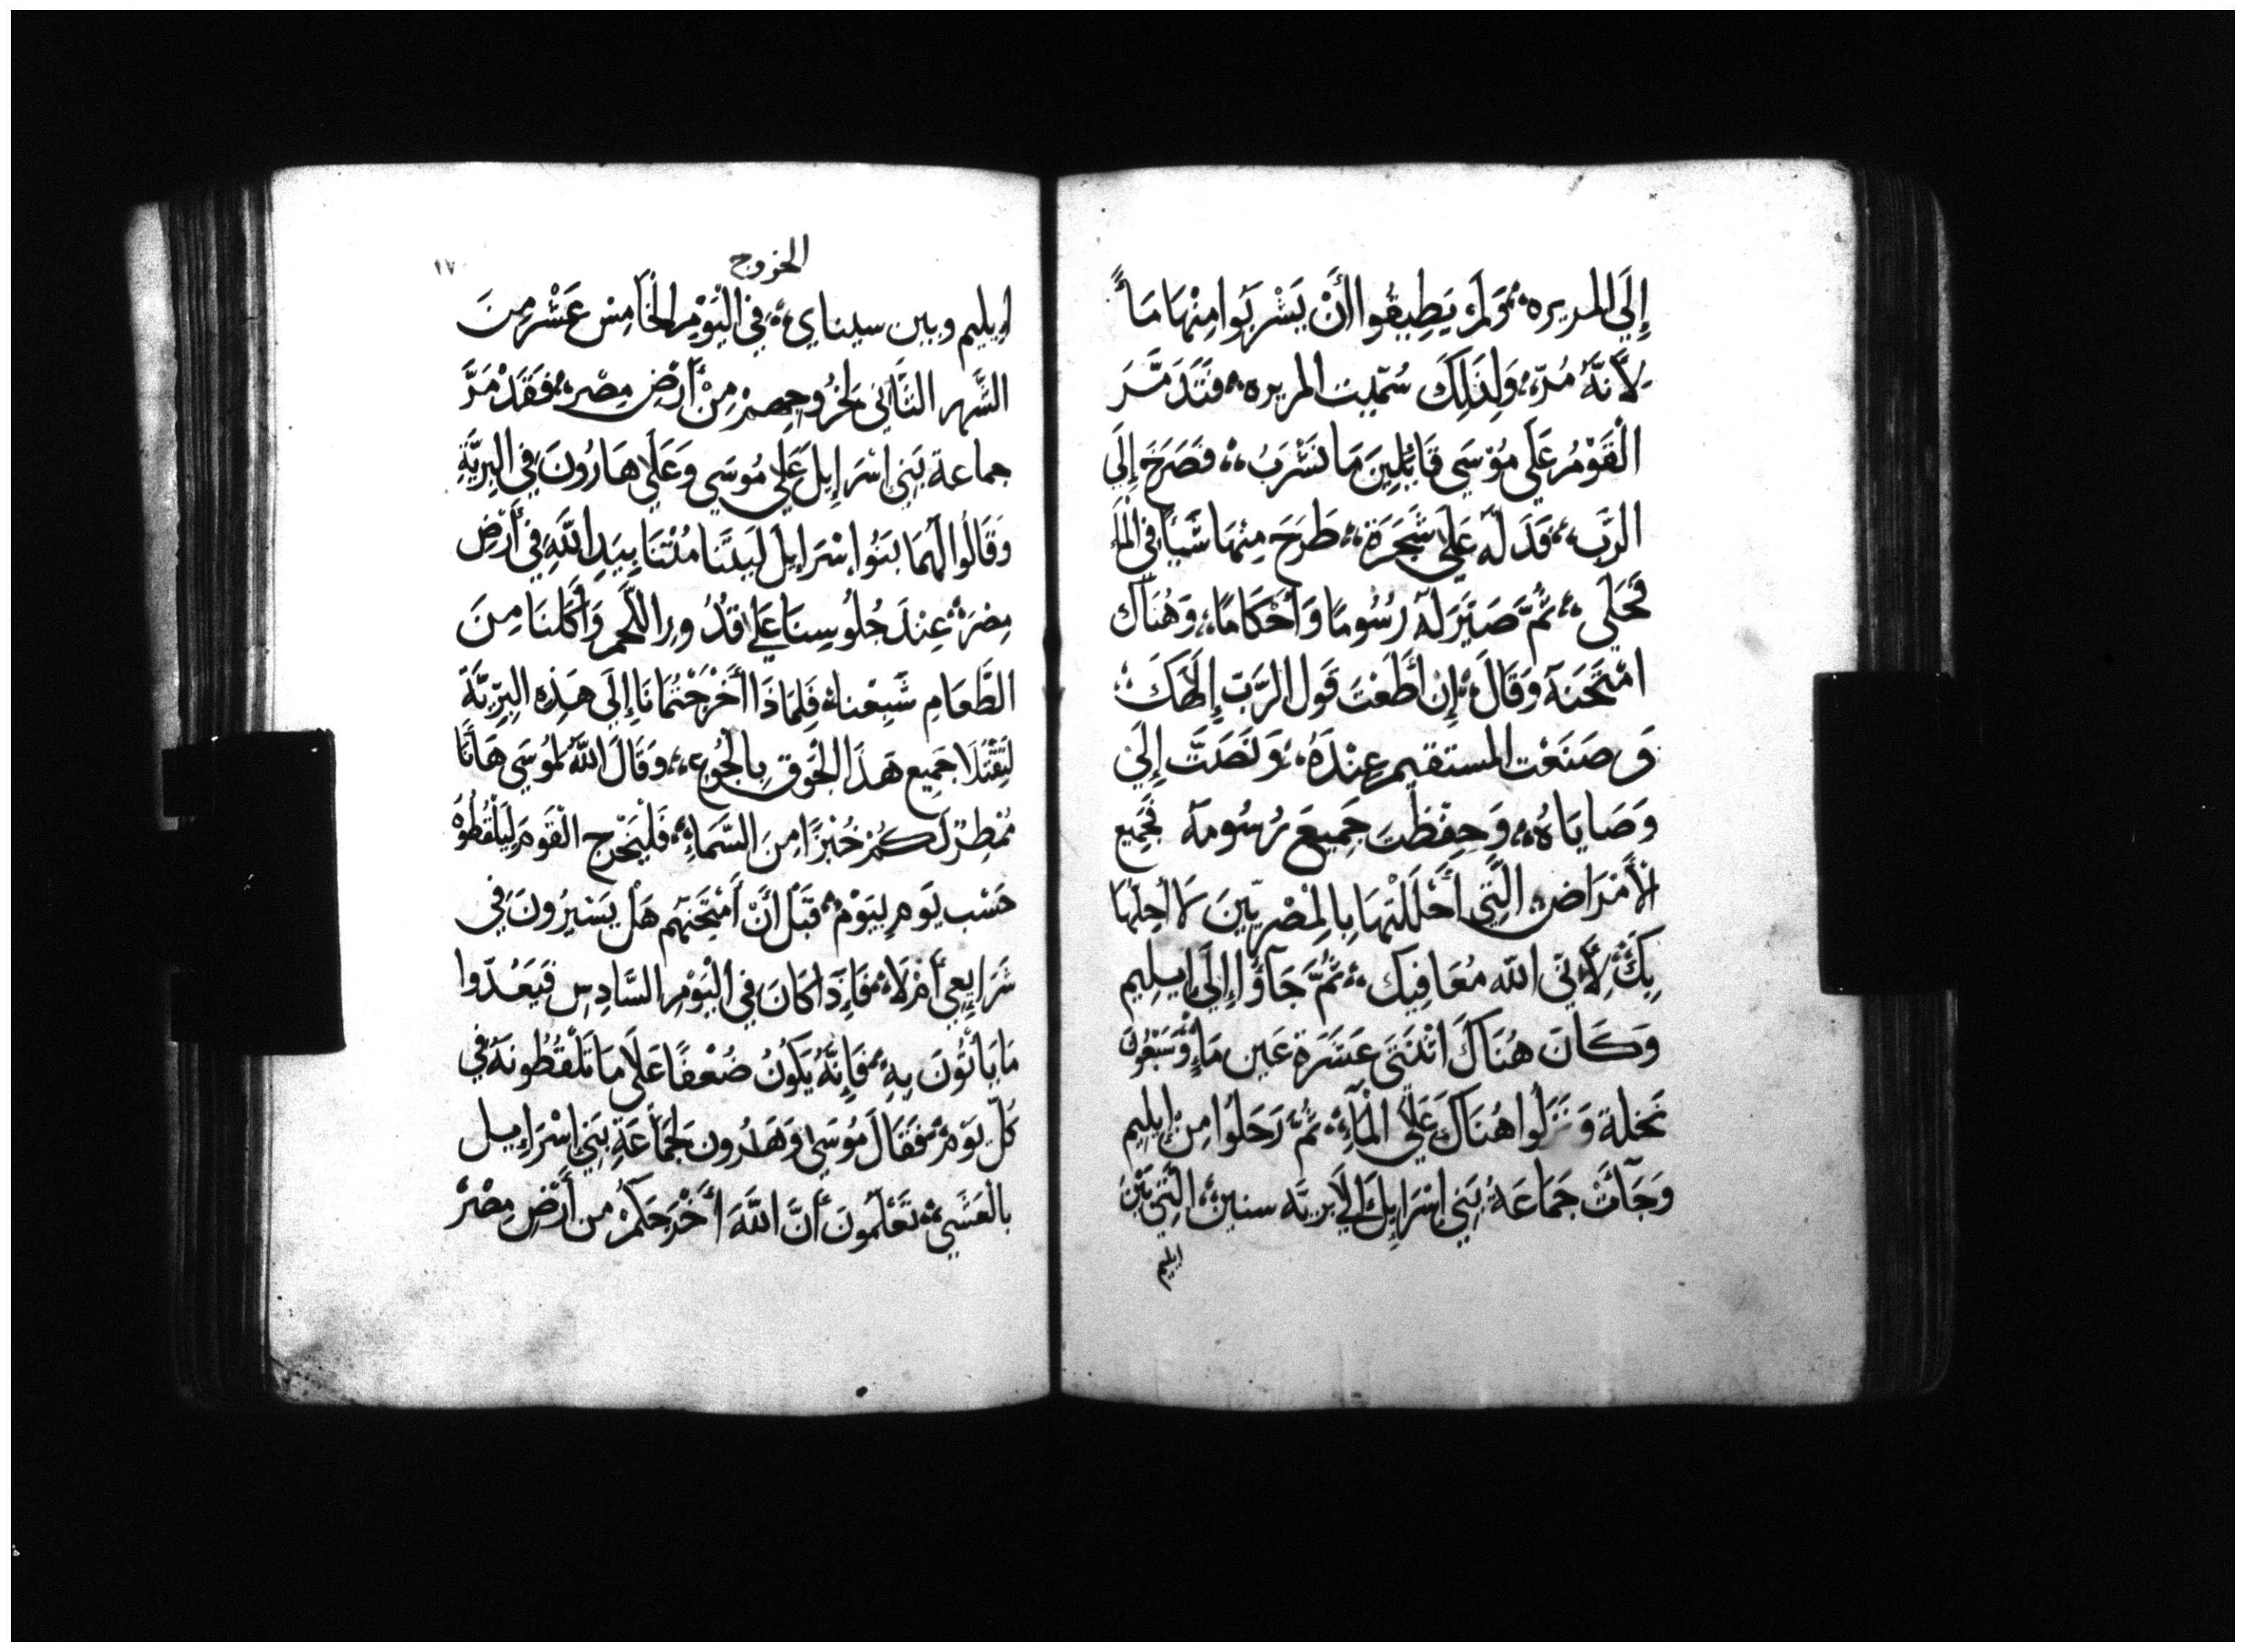 إِلَي المريره؛ وَلَمْ يَطِيقُوا أَنْ يَشْرَبُوا مِنْهَا مَاً
لِأَنَّهُ مُرّ؛ وَلِذَلِكَ سُمّيت المريره؛ فَتَذَمَّرَ
الْقَوْمُ عَلَي مُوْسَي قَائِلِينَ مَا نَشْرَبُ؛ فَصَرَخَ إِلَي
الرَّبِ؛ فَدَلَّه عَلَي شَجَرَة؛ طَرَحَ مِنْهَا شَيْاً فِي الْمَاء
فَحَلَي؛ ثُمَّ صَيَّرَ لَهُ رُسُومًا وَأَحْكَامًا؛ وَهُنَاكَ
امْتَحَنَهُ وَقَالَ؛ إِنْ أَطَعْتَ قَولَ الرَّبّ إِلَاهَكَ؛
وَصَنَعْت المستقيم عِنْدَهُ؛ وَنَصَتَّ إِلَي
وَصَايَاهُ؛ وَحِفِظْتَ جَمِيعَ رُسُومهُ فَجَمِيع
الْأَمْرَاض؛ الَّتِي أَحْلَلْتهَا بِالْمِصْرِيّينَ لَا أحِلهَا
بِكَ؛ لِأَنّي اللّه مُعَافِيك؛ ثُمَّ جَآؤُا إِلَي إيلِيم
وَكَانَ هُنَاكَ اثْنَتَي عَشَرَة عَين مَاءٍ وَسَبْعُونَ
نَخلة وَنَزَلُوا هُنَاكَ عَلَي الْمَآءِ؛ ثُمَّ رَحَلُوا مِنْ إيلِيم
وَجَآئَتْ جَمَاعَةُ بَنِي اِسْرَايِلَ إلَي برِيَّه سنين؛ الَّتِي بَيْنَ
ايليم
الخروج
١٧
اِيليم وبين سيناي؛ فِي الْيَوْمِ الْخَامِس عَشَرْ مِنَ
الشَّهر الثَّانِي لِخُرُوجِهِمْ مِنْ أَرْضِ مِصْر؛ فَقَذْمَرَّ
جماعة بَنِي اِسْرَاِيلَ عَلَي مُوسَي وَعَلَي هَارُونَ فِي الْبِرِيَّةِ
وَقَالُوا لَهُمَا بَنُوا إِسْرَايِلَ لَيْتَنَا مُتْنَا بِيَدِ اللَّهِ فِي أَرْضِ
مِصْرَ؛ عِنْدَ جُلُوسِنَا عَلَي قُدُورِ اللَّحم وَأَكَلنَا مِنَ
الطَّعَامِ شَبِعْنا؛ فَلِمَاذَا أَخْرَجْتُمَانَا إِلَي هَذِهِ الْبِرِّيَّةِ
لِتَقْتُلَا جَمِيع هَذَا الْجَوْقِ بِالْجُوعِ؛ وَقَالَ اللَّهُ لِمُوسَي هَا أَنَا
مُمْطِرْ لَكُمْ خُبْزًا مِنَ السَّمَاءِ؛ فَلْيَخْرج الْقَومَ لِيَلْقُطُوهُ
حَسْب يَومٍ بِيَوْم؛ قَبْل أَنْ أَمْتَحِنَهُم هَلْ يَسْيرُونَ فِي
شَرَايِعِي أَمْ لَا؛ فَإِذَا كَانَ فِي الْيَوْمِ السَّادِسِ فَيَعُدّوا
مَا يَأتُونَ بِهِ؛ فَإِنَّهُ يَكُونُ ضُعْفًا عَلَي مَا تَلْقُطُونهُ فِي
كُلّ يَوْم؛ فَقَالَ مُوسَي وَهَارُون لِجَمَاعَةِ بَنِي إِسْرَايِيل
بالْعَشَيِّ؛ تَعْلَمُونَ أَنَّ اللَّهَ أَخْرَجَكُمْ مِن أَرْضِ مِصْرَ